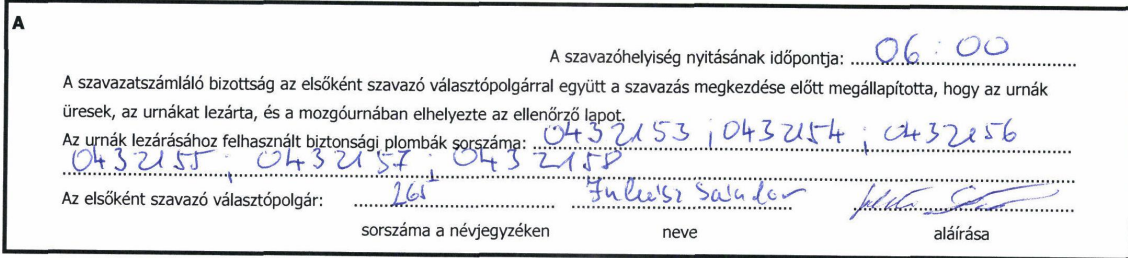 A
A szavazóhelyiség nyitásának időpontja: 06:00
A szavazatszámláló bizottság az elsőként szavazó választópolgárral együtt a szavazás megkezdése előtt megállapította, hogy az urnák
üresek, az urnákat lezárta, és a mozgóurnában elhelyezte az ellenőrző lapot.
Az urnák lezárásához felhasznált biztonsági plombák sorszáma: 0432153 ; 0432154 ; 0432156
0432155 ; 0432157 ; 0432158
Az elsőként szavazó választópolgár: 265 Sándor
sorszáma a névjegyzéken neve aláírása